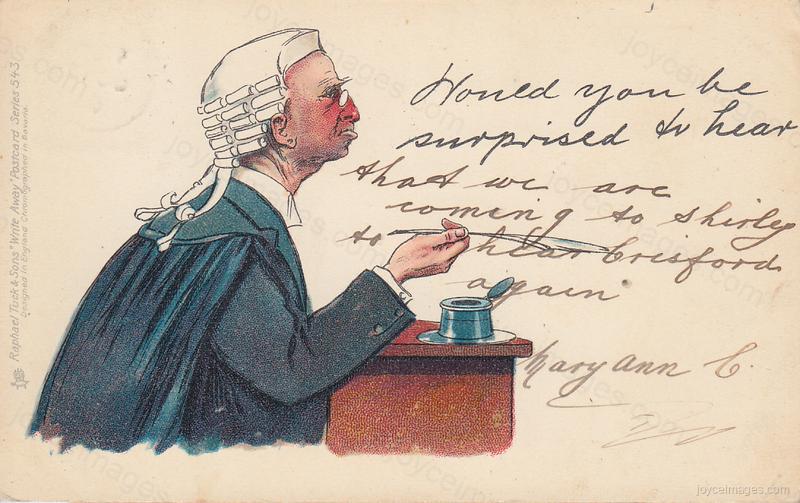 Would you be
surprised to hear
that we are
coming to Shirly
to hear Brisford
again
Mary Ann C.
Raphael Tuck & Sons "Write Away" Postcard Series 543
Designed in England Chromographed in Bavaria.
joyceimages.com